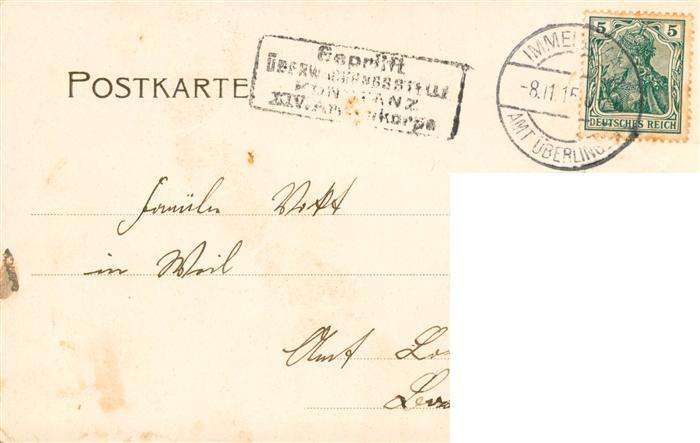 POSTKARTE
Geprüft
Überwachungsstelle
KONSTANZ
XIV. Armeekorps
IMME
-8.11.15
AMT ÜBERLING
5 5
DEUTSCHES REICH
Familie Vogt
in Weil
Amt Lö